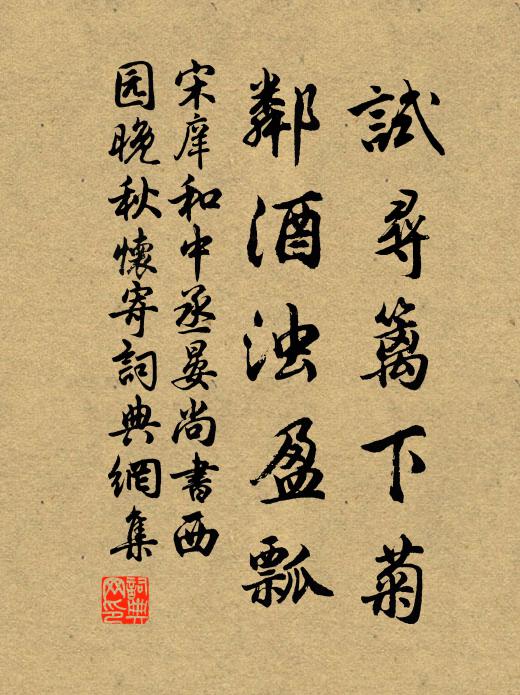 試尋籬下菊
鄰酒浊盈瓢
宋庠和中丞晏尚書西
园晚秋懷寄詞典網集
詞典
网印